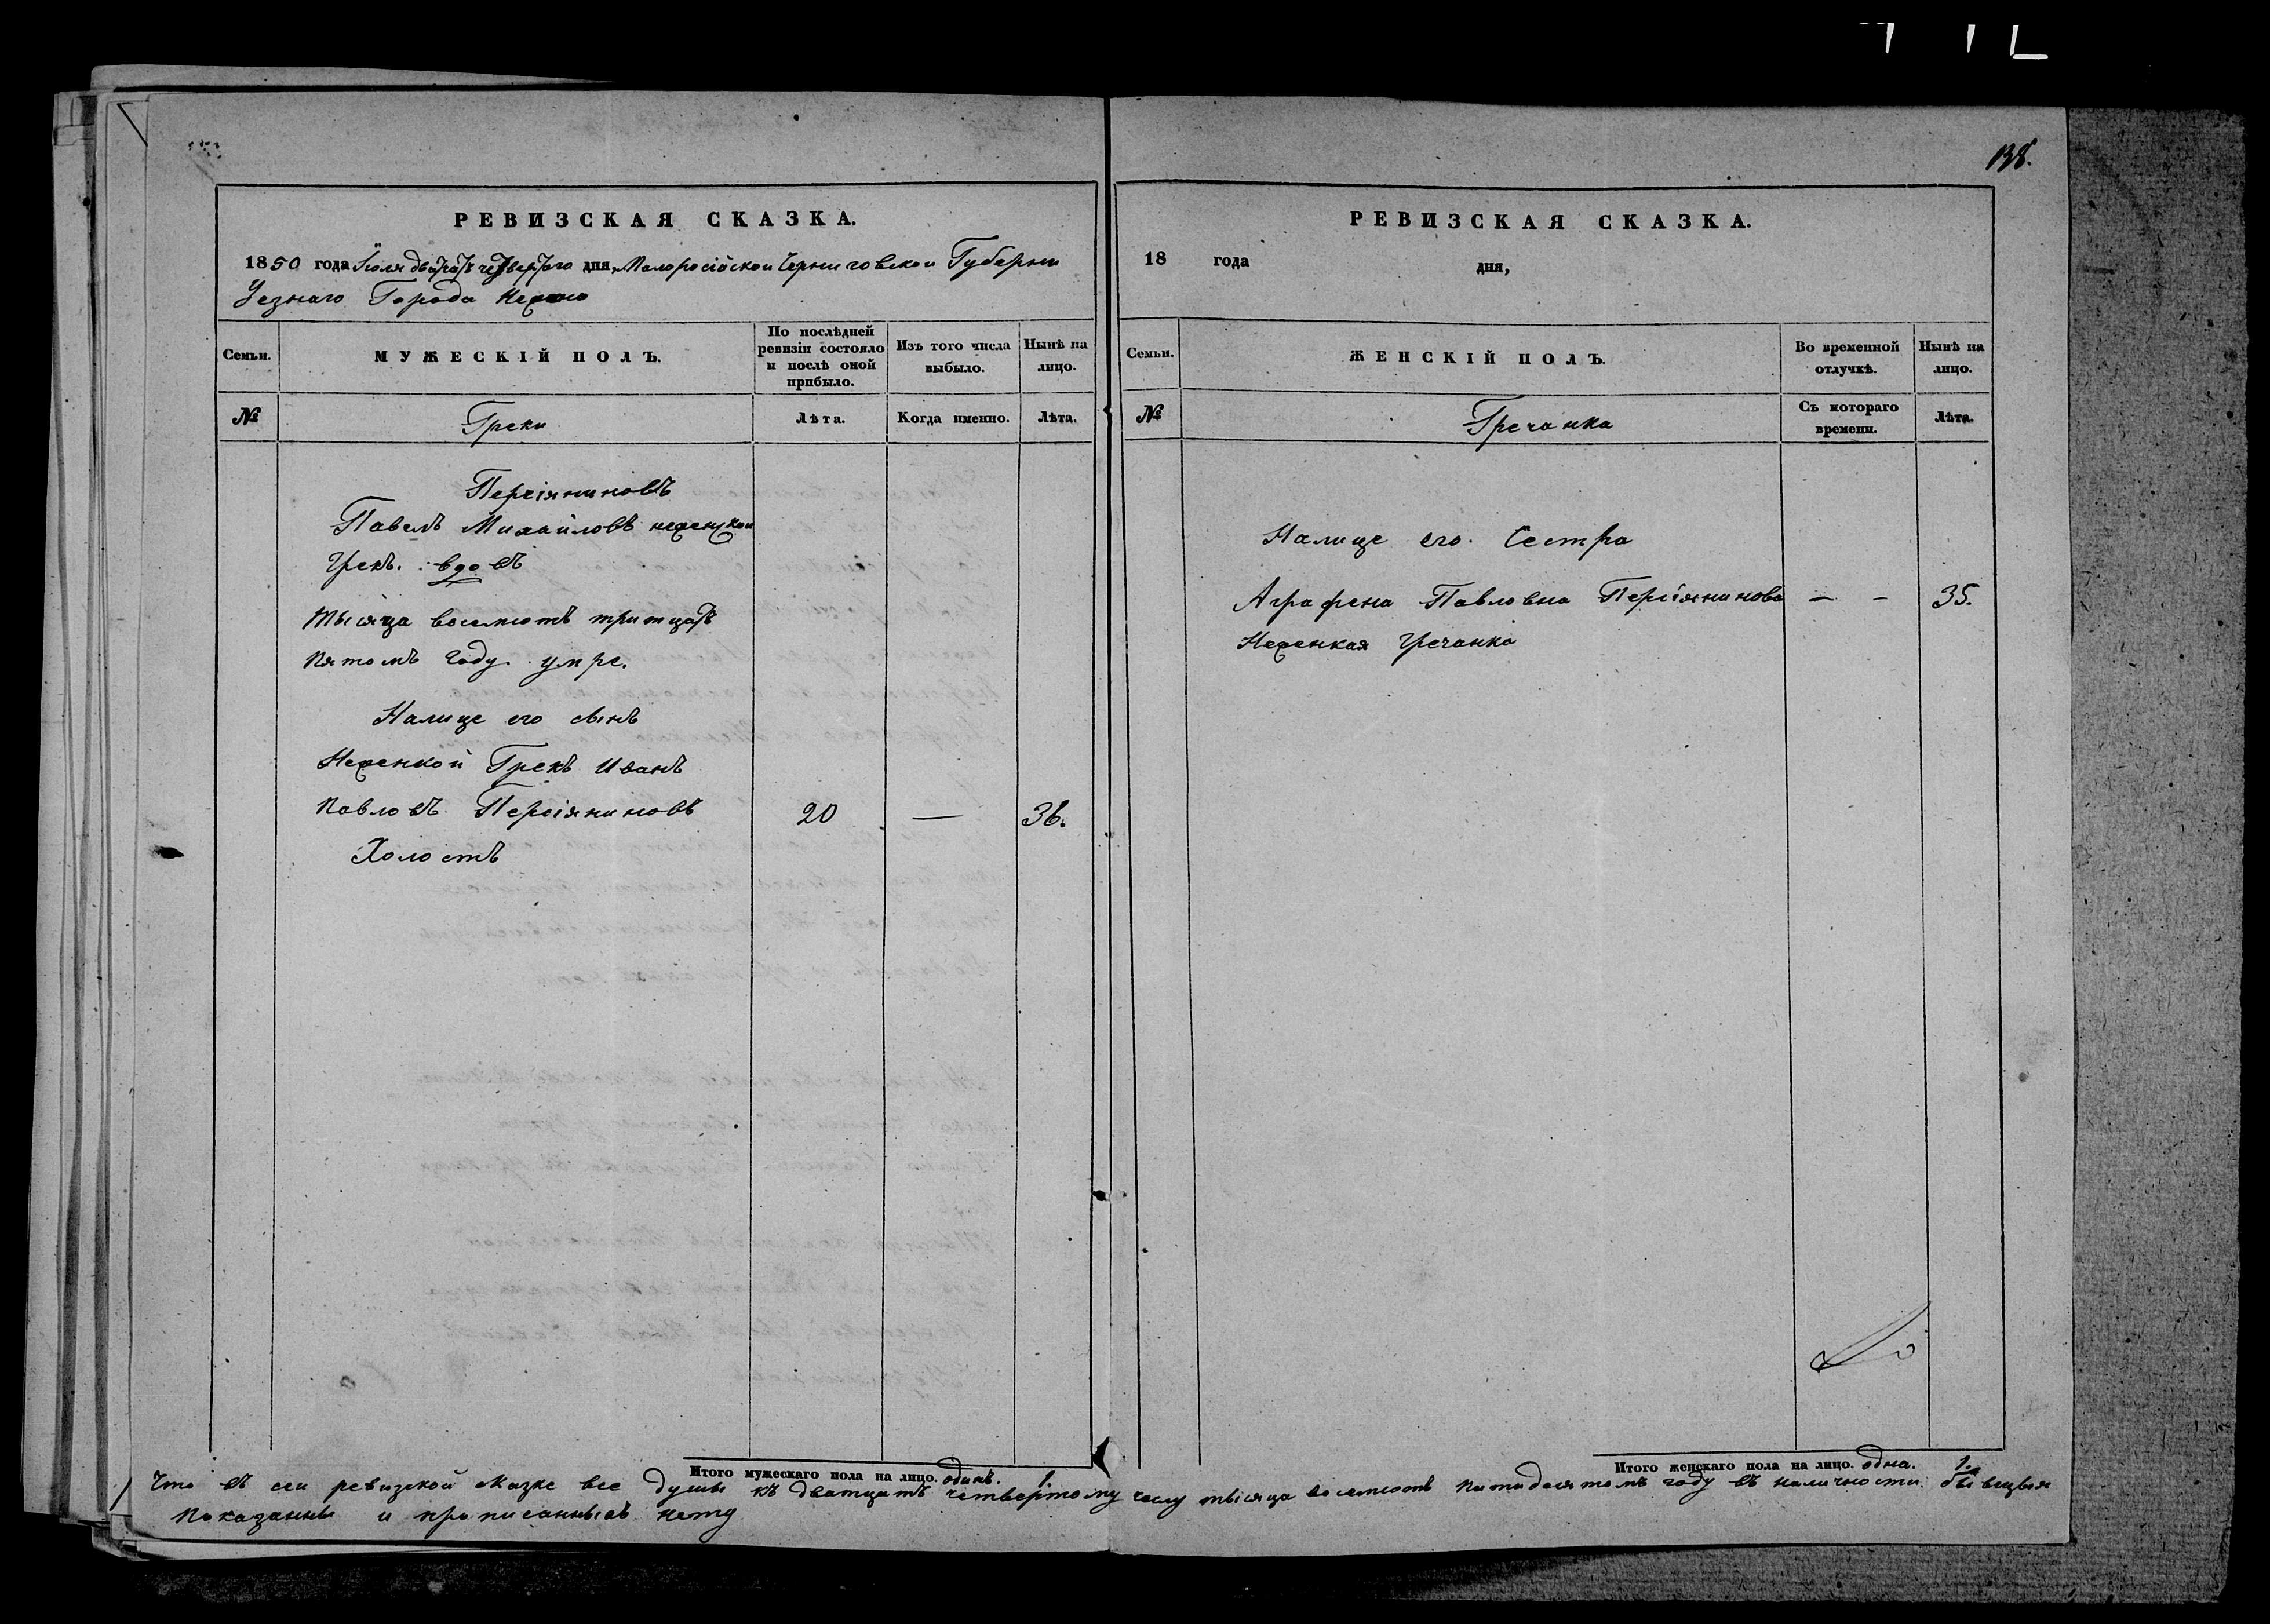 138.
РЕВИЗСКАЯ СКАЗКА.
1850 года Іюля двацать четвертого дня, Малоросійской Черниговской Губерни
Уезнаго Города Нежена
Семьи.
МУЖЕСКІЙ ПОЛЪ.
По послѣдней ревизіи состояло и послѣ оной прибыло.
Изъ того числа выбыло.
Нынѣ на лицо.
№
Греки
Лѣта.
Когда именно.
Лѣта.
Персіяниновъ
Павелъ Михайловъ неженской
Грекъ. вдовъ
тысяца восемсотъ тритцать
Пятомъ Году умре.
Налице его сынъ
Неженкой Грекъ Иванъ
Павловъ Персіяниновъ 20 — 36.
Холостъ
Итого мужескаго пола на лицо. одинъ. 1.
РЕВИЗСКАЯ СКАЗКА.
18 года дня,
Семьи.
ЖЕНСКІЙ ПОЛЪ.
Во временной отлучкѣ.
Нынѣ на лицо.
№
Гречанка
Съ котораго времени.
Лѣта.
Налице его Сестра
Аграфена Павловна Персіянинова — — 35.
Неженкая Гречанка
Итого женскаго пола на лицо. одна. 1.
Что въ сеи ревизкой сказке все душы къ дватцать четвертому числу тысяца восемсотъ питидесятомъ году въ наличности бывшыя
Показанны и прописанныеъ нету